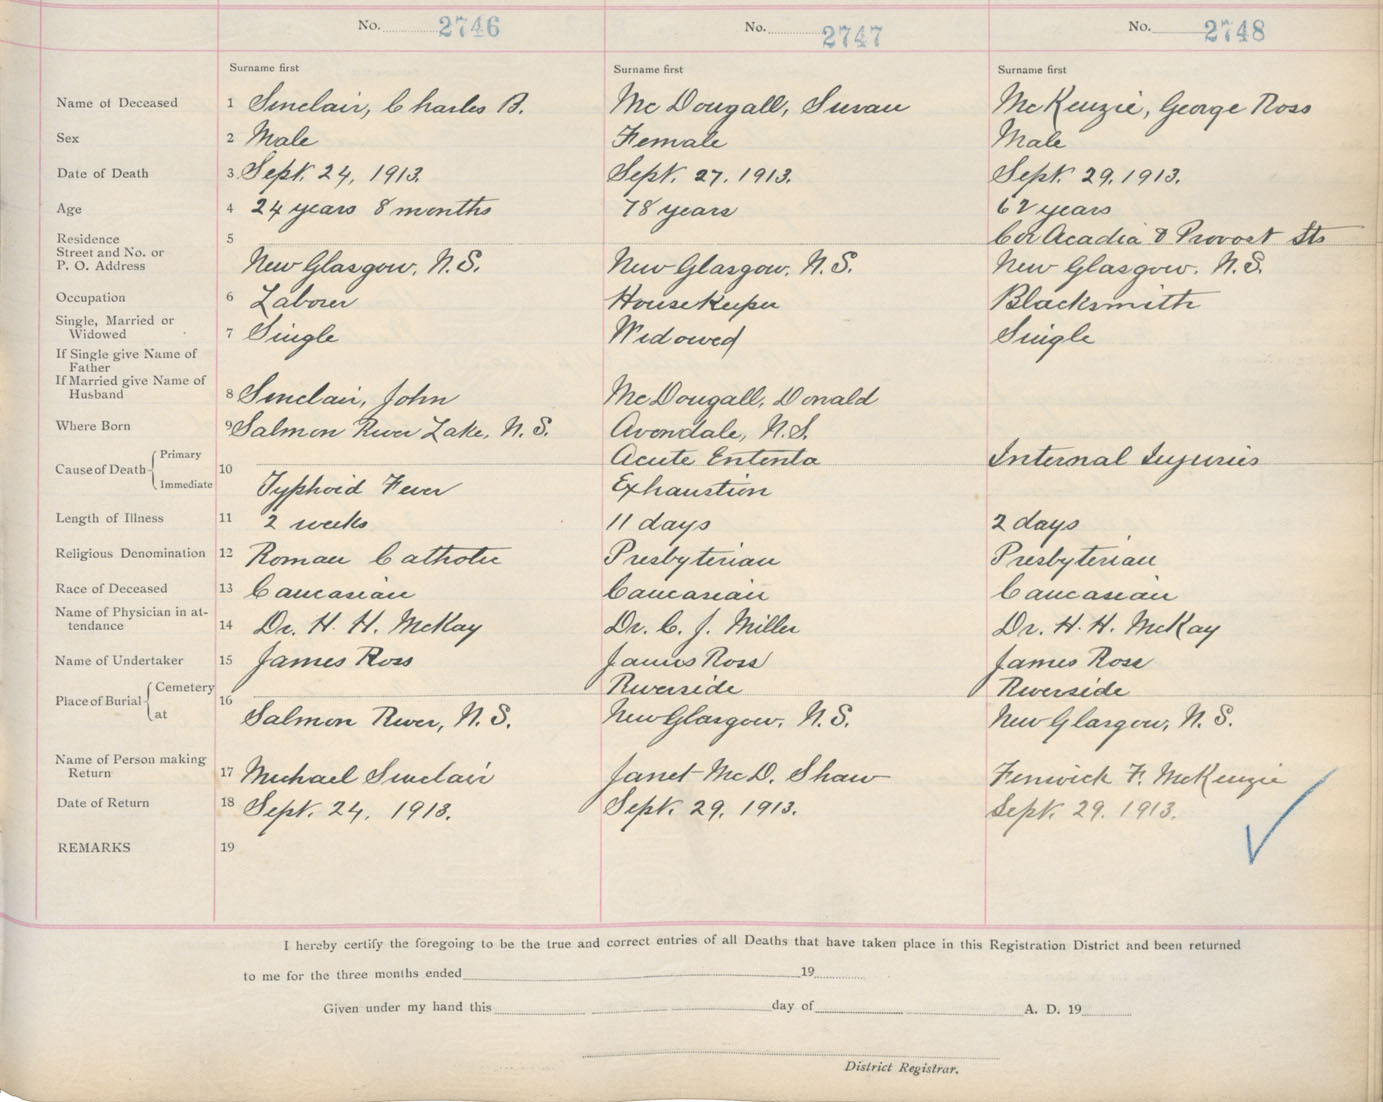 No. 2746 No. 2747 No. 2748
Surname first Surname first Surname first
Name of Deceased 1 Sinclair, Charles B. McDougall, Susan McKenzie, George Ross
Sex 2 Male Female Male
Date of Death 3 Sept. 24, 1913. Sept. 27. 1913. Sept. 29. 1913.
Age 4 24 years 8 months 78 years 62 years
Residence 5 Cor Acadia & Provost Sts
Street and No. or
P. O. Address New Glasgow, N.S. New Glasgow. N.S. New Glasgow. N.S.
Occupation 6 Laborer Housekeeper Blacksmith
Single, Married or
Widowed 7 Single Widowed Single
If Single give Name of
Father
If Married give Name of
Husband 8 Sinclair, John McDougall, Donald
Where Born 9 Salmon River Lake, N.S. Avondale, N.S.
Cause of Death Primary 10 Acute Internal Injuries
Immediate Typhoid Fever Exhaustion
Length of Illness 11 2 weeks 11 days 2 days
Religious Denomination 12 Roman Catholic Presbyterian Presbyterian
Race of Deceased 13 Caucasian Caucasian Caucasian
Name of Physician in at-
tendance 14 Dr. H. H. McKay Dr. C. J. Miller Dr. H. H. McKay
Name of Undertaker 15 James Ross James Ross James Ross
Place of Burial Cemetery 16 Riverside Riverside
at Salmon River, N.S. New Glasgow, N.S. New Glasgow, N.S.
Name of Person making
Return 17 Michael Sinclair Janet McD. Shaw Fenwick F. McKenzie
Date of Return 18 Sept. 24, 1913. Sept. 29, 1913. Sept. 29. 1913.
REMARKS 19
I hereby certify the foregoing to be the true and correct entries of all Deaths that have taken place in this Registration District and been returned
to me for the three months ended 19
Given under my hand this day of A. D. 19
District Registrar.